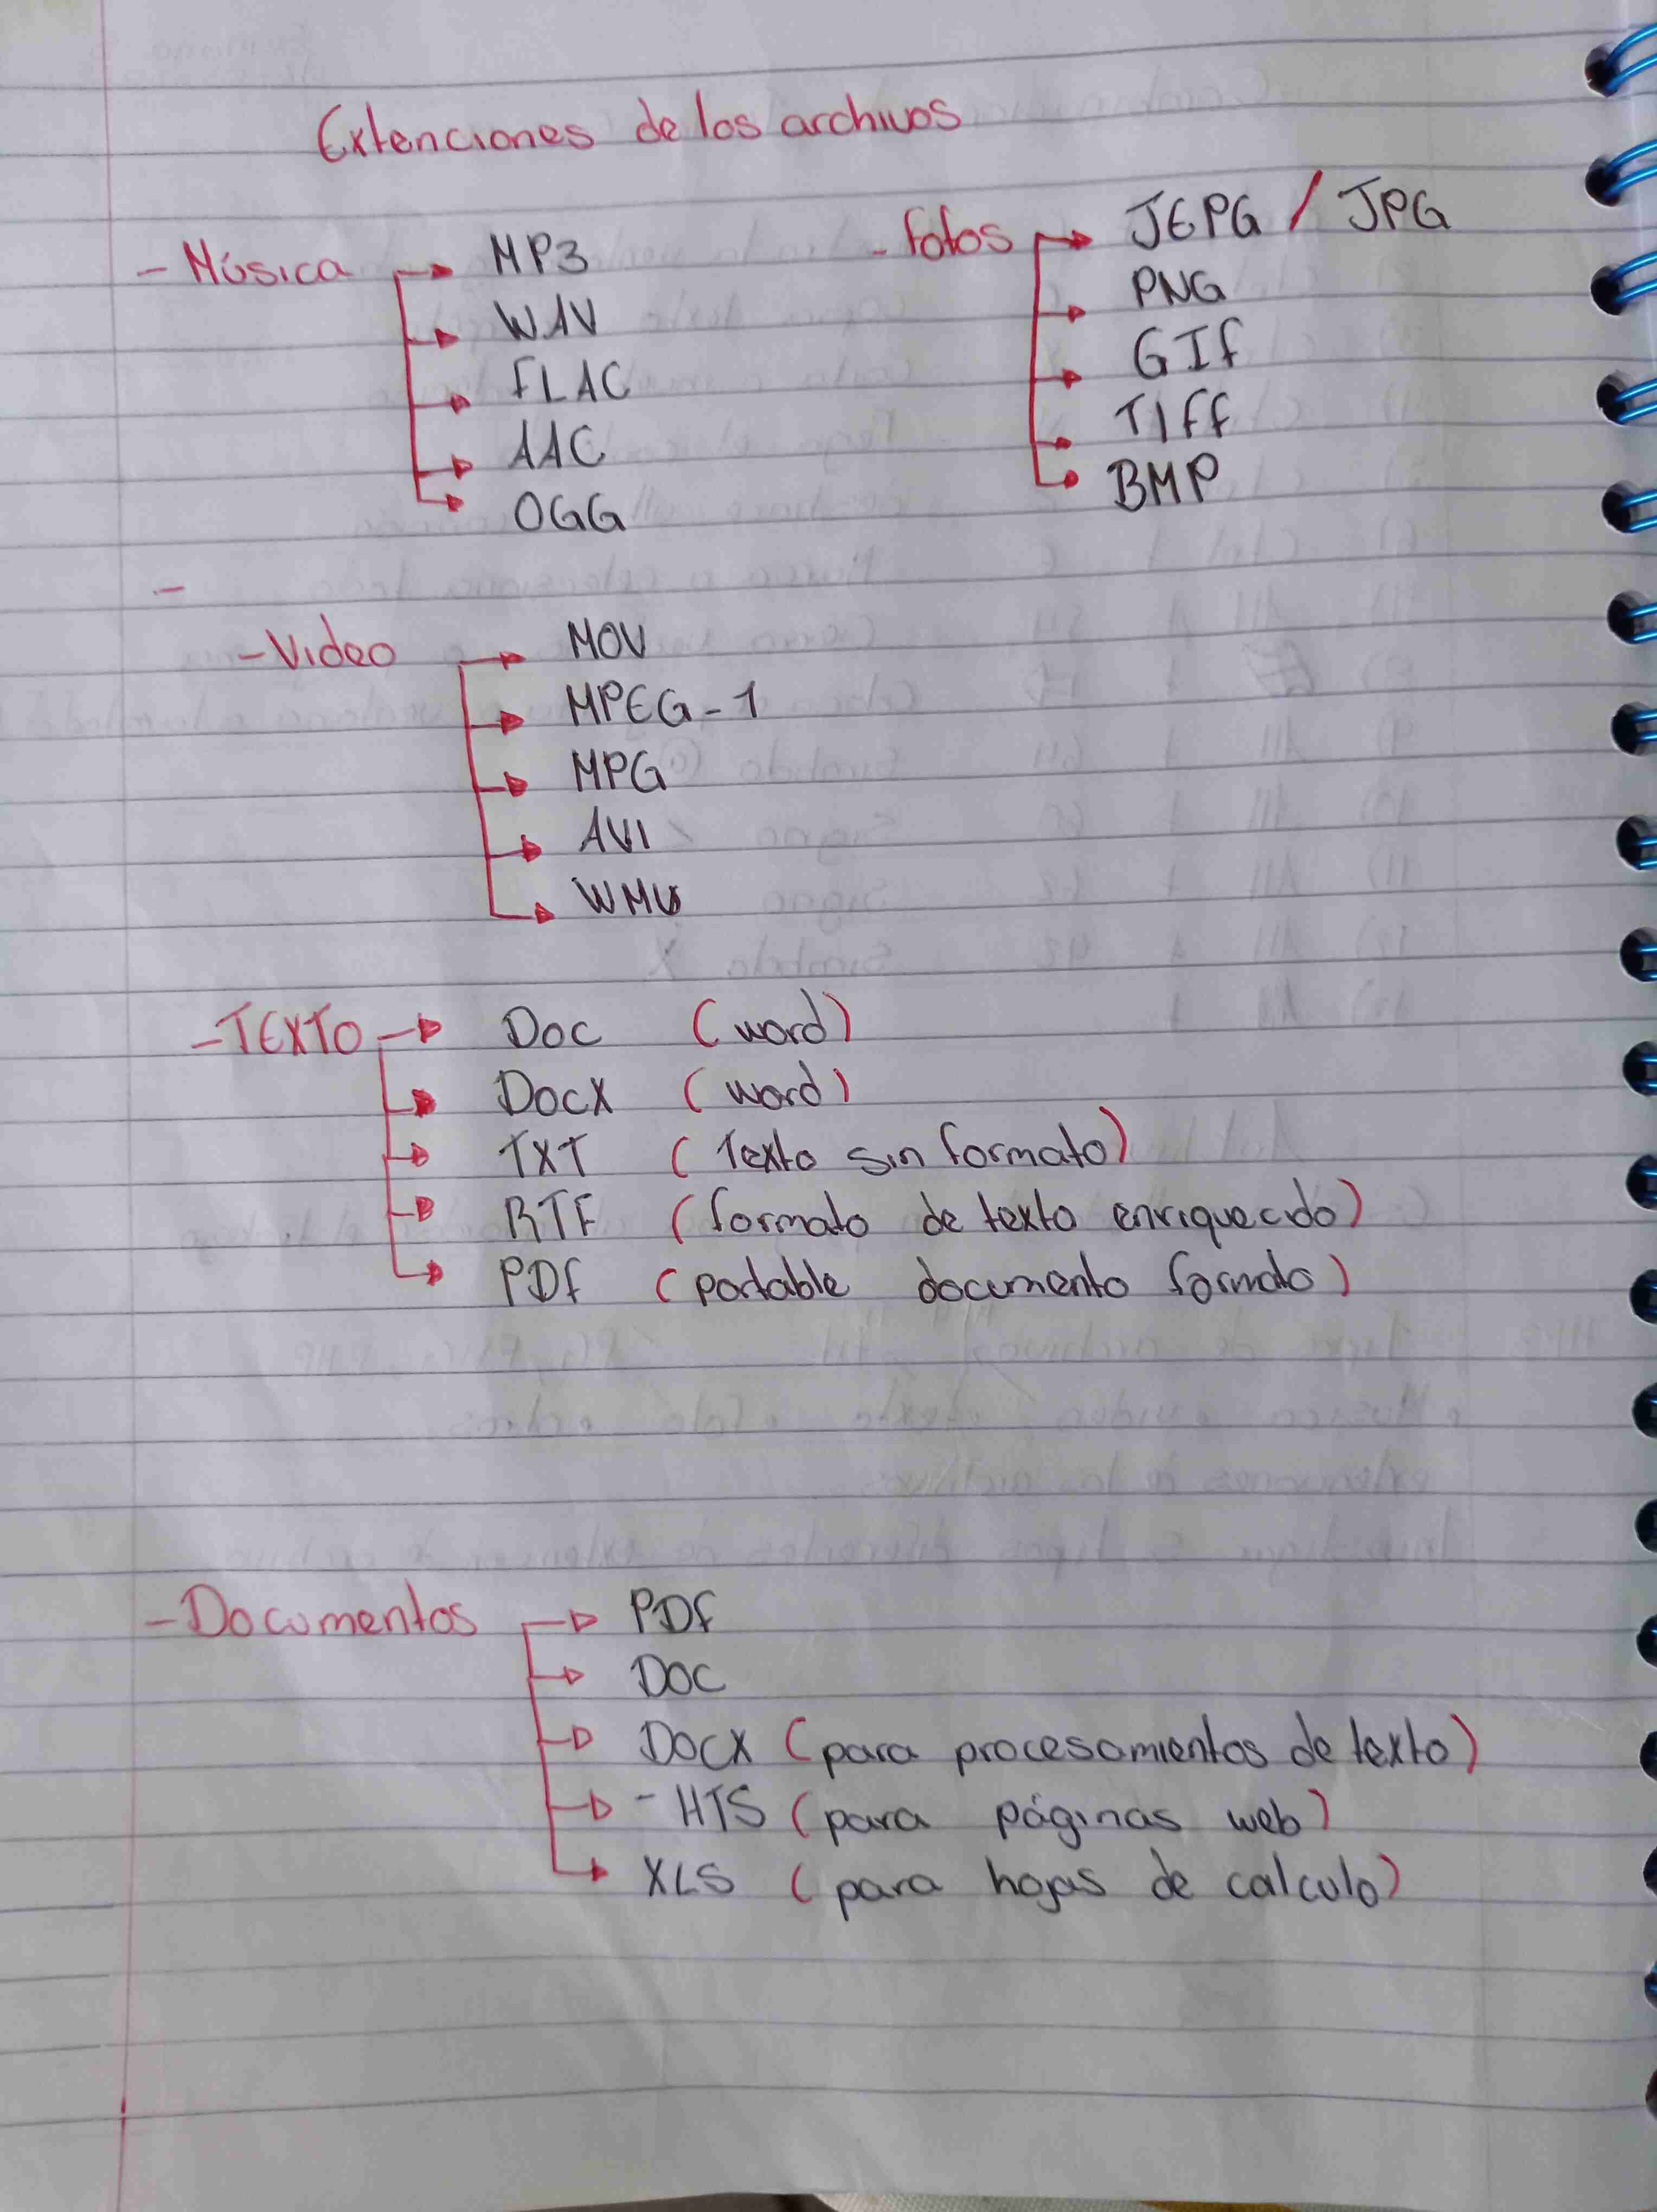 Extenciones de los archivos
- Música
MP3
WAV
FLAC
AAC
OGG
- Fotos
JEPG / JPG
PNG
GIF
TIFF
BMP
-
- Video
MOV
MPEG-1
MPG
AVI
WMV
- TEXTO
Doc (word)
Docx (word)
TXT (Texto sin formato)
RTF (formato de texto enriquecido)
PDF (portable documento formato)
- Documentos
PDF
DOC
DOCX (para procesamientos de texto)
- HTS (para páginas web)
XLS (para hojas de calculo)